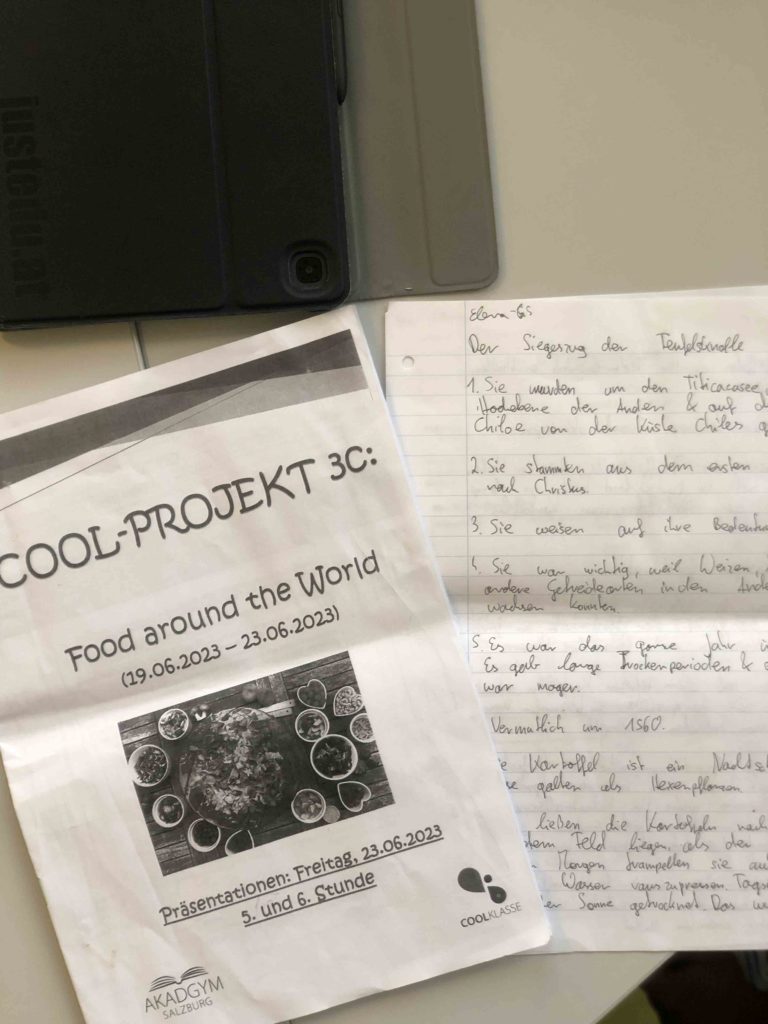 justedu.at
COOL-PROJEKT 3C:
Food around the World
(19.06.2023 – 23.06.2023)
Präsentationen: Freitag, 23.06.2023
5. und 6. Stunde
COOLKLASSE
AKADGYM
SALZBURG
Der Siegeszug der Teufelsknolle
1. Sie wurden um den Titicacasee,
Hochebene der Anden & auf d
Chiloe von der Küste Chiles g
2. Sie stammten aus dem ersten
nach Christus.
3. Sie weisen auf ihre Bedeutun
4. Sie war wichtig, weil Weizen,
andere Getreidearten in den Ande
wachsen konnten.
5. Es war das ganze Jahr
Es gab lange Trockenperioden &
war mager.
Vermutlich um 1560.
Kartoffel ist ein Nachtsch
galten als Hexenpflanzen.
ließen die Kartoffeln
dem Feld liegen, als der
Morgen trampelten sie
Wasser rauszupressen. Tags
der Sonne getrocknet. Das